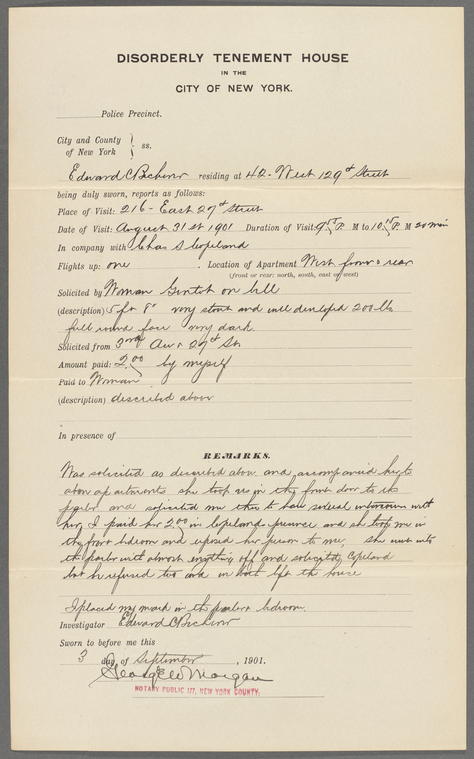 DISORDERLY TENEMENT HOUSE
IN THE
CITY OF NEW YORK.
Police Precinct.
City and County
of New York } ss.
Edward C residing at 42 - West 129th Street
being duly sworn, reports as follows:
Place of Visit: 216 - East 27th Street
Date of Visit: August 31st 1901 Duration of Visit: 9 15 P. M to 10 15 P. M
In company with Chas S Copeland
Flights up: one . Location of Apartment West front & rear
(front or rear: north, south, east or west)
Solicited by Woman on bill
(description) 5 ft 8" very stout and well developed 200 lbs
full round face very dark
Solicited from 3rd Ave & 27th St
Amount paid: 2.00 by myself
Paid to Woman
(description) described above
In presence of
REMARKS.
Was solicited as described above and accompanied her to
above apartments she took us in the front door to the
parlor and solicited me there to have sexual intercourse with
her, I paid her 2.00 in Copeland presence and she took me in
the front bedroom and exposed her person to me, she went into
the parlor with almost everything off and solicited Copeland
but he refused too and we both left the house
I placed my mark in the parlor & bedroom.
Investigator Edward C
Sworn to before me this
3 day of September , 1901.
George W Morgan
NOTARY PUBLIC 177, NEW YORK COUNTY.